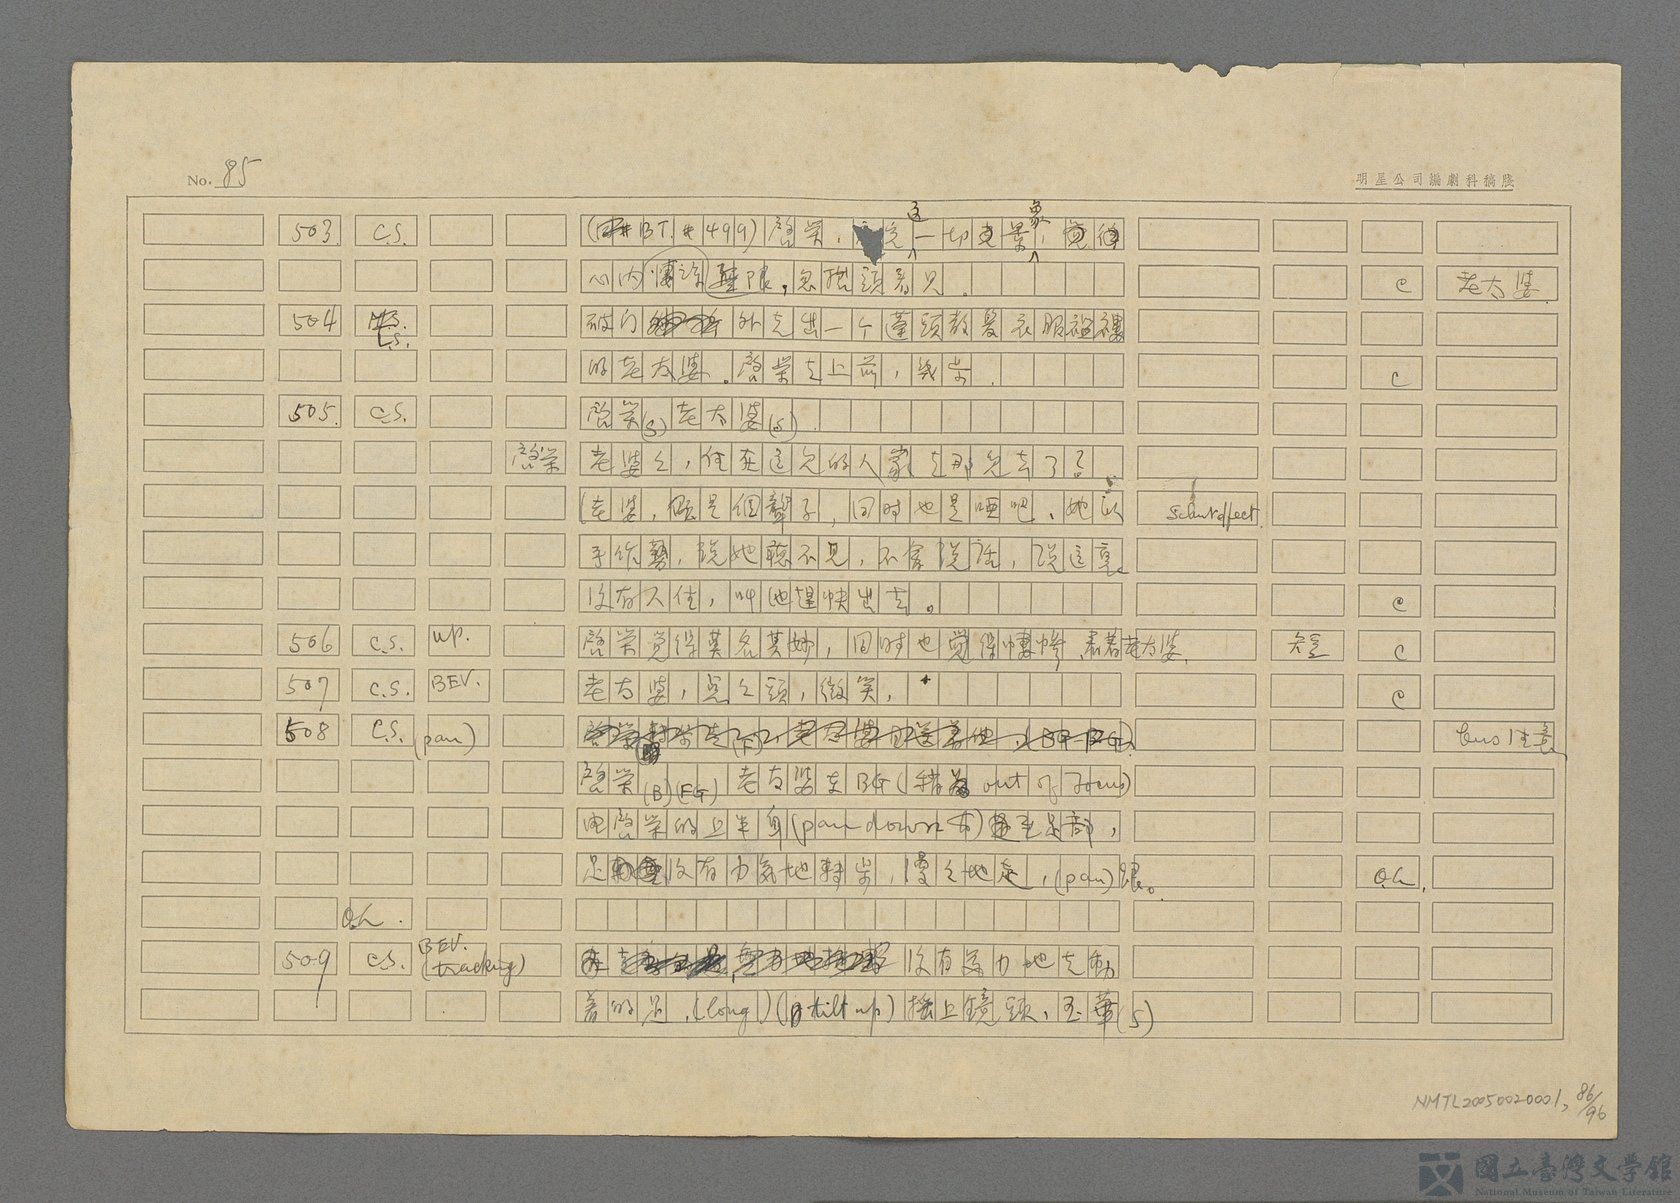 No. 85
明星公司編劇科稿牋
503. C.S. (BT. # 499) 啓榮, 完這一切景象, 覺得
心內悽涼無限, 忽抬頭看見. C 老太婆.
504 L.S. 破門外走出一个蓬頭散髮衣服襤褸
的老太婆. 啓榮走上前, C
505. C.S. 啓榮(S) 老太婆(S).
啓榮 老婆々, 住在這兒的人家走那兒去了?
(老婆, 原是個聾子, 同時也是啞吧, 她以 sound effect.
手作勢, 說她聽不見, 不會說話, 說這裏
沒有人住, 叫他趕快出去。 C
506 C.S. up. 啓榮覺得莫名其妙, 同時也覺得悽慘, 看着老太婆. C
507 C.S. BEV. 老太婆, 点々頭, 微笑, C
508 C.S. (pan) bus 注意
啓榮(B)(FG) 老太婆在BG (稍為 out of focus)
由啓榮的上半身(pan down 市)至足部,
足沒有力氣地轉, 慢々地走, (pan) 跟。 O.L.
O.L.
509 C.S. BEV. (tracking) 沒有力地走動
着的足. (long) (tilt up) 搖上鏡頭, 玉華(S)
NMTL20050020001, 86/96
國立臺灣文學館
National Museum of Taiwan Literature